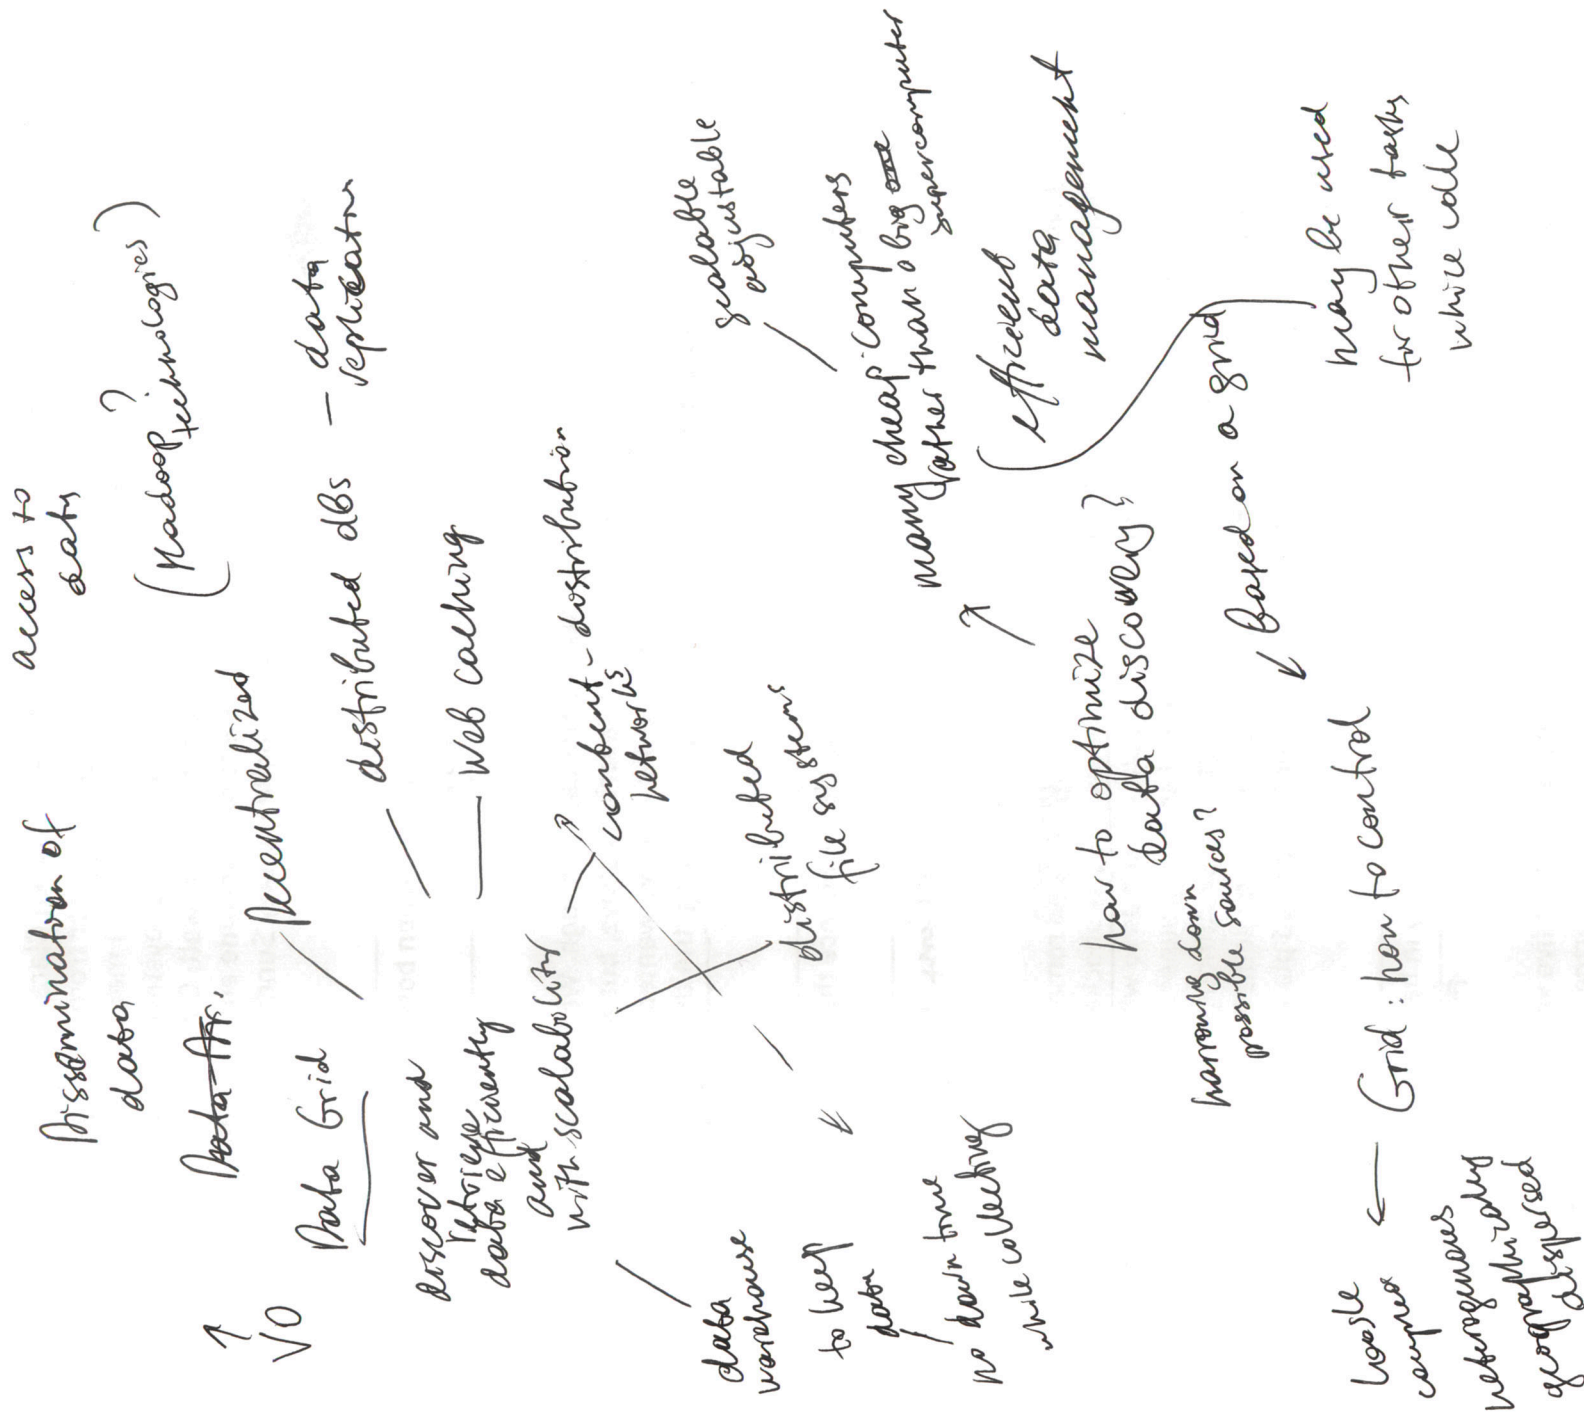 Dissemination of
data
access to
data
(Hadoop ?
technologies)
Data Grid
Decentralized
↑
VO
discover and
retrieve
data efficiently
and
with scalability
distributed dbs — data
replication
web caching
content-distribution
networks
distributed
file systems
data
warehouse
to keep
data
no down time
while collecting
scalable
adjustable
many cheap computers
rather than a big one
supercomputer
efficient
data
management
how to optimize
data discovery?
narrowing down
possible sources?
based on a grid
may be used
for other tasks
while idle
Grid: how to control
loosle
coupled
heterogeneous
geographically
dispersed